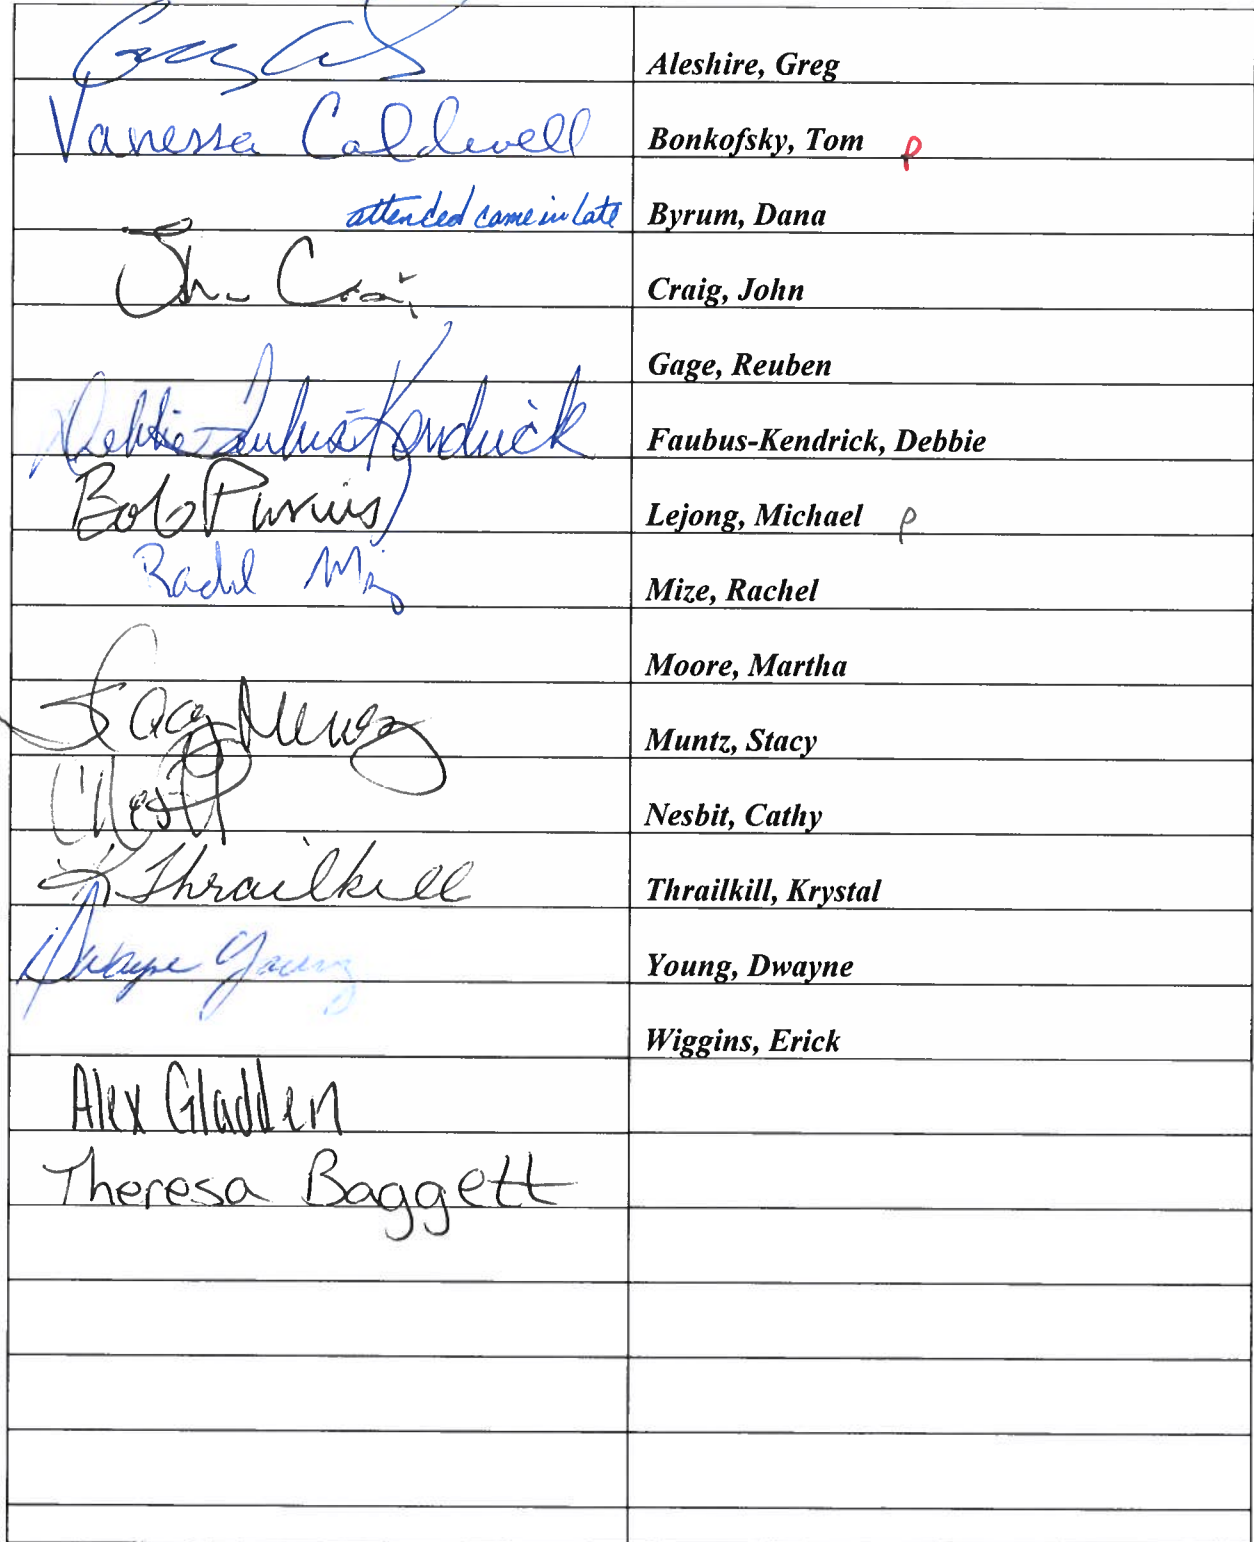 Aleshire, Greg
Vanessa Caldwell Bonkofsky, Tom P
attended came in late Byrum, Dana
John Craig Craig, John
Gage, Reuben
Debbie Faubus-Kendrick Faubus-Kendrick, Debbie
Bob Purvis Lejong, Michael P
Rachel Miz Mize, Rachel
Moore, Martha
Stacy Muntz Muntz, Stacy
Nesbit, Cathy
K Thrailkill Thrailkill, Krystal
Dwayne Young Young, Dwayne
Wiggins, Erick
Alex Gladden
Theresa Baggett